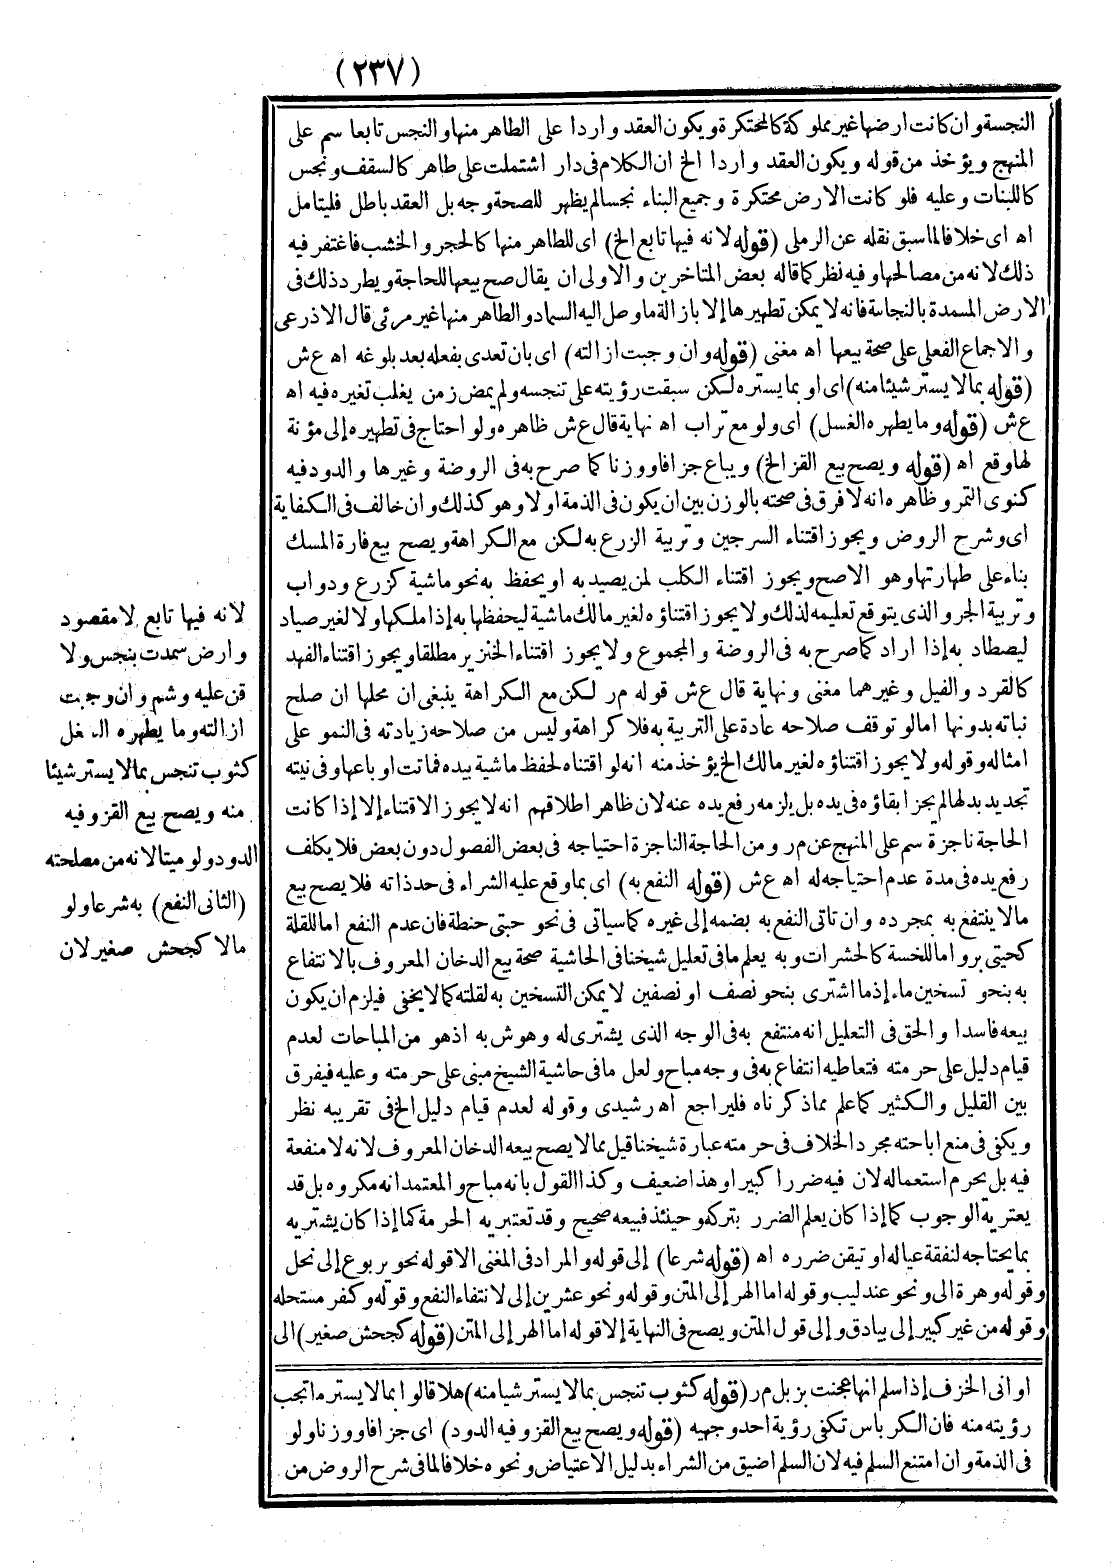 (٢٣٧)
النجسة وان كانت ارضها غير مملوكة كالمحتكرة ويكون العقد واردا على الطاهر منها والنجس تابعا سم على
المنهج ويؤخذ من قوله ويكون العقد واردا الخ ان الكلام فى دار اشتملت على طاهر كالسقف ونجس
كاللبنات وعليه فلو كانت الارض محتكرة وجميع البناء نجسا لم يظهر للصحة وجه بل العقد باطل فليتامل
اه اى خلافا لما سبق نقله عن الرملى (قوله لانه فيها تابع الخ) اى للطاهر منها كالحجر والخشب فاغتفر فيه
ذلك لانه من مصالحها وفيه نظر كما قاله بعض المتاخرين والاولى ان يقال صح بيعها للحاجة ويطرد ذلك فى
الارض المسمدة بالنجاسة فانه لا يمكن تطهيرها إلا بازالة ما وصل اليه السماد والطاهر منها غير مرئى قال الاذرعى
والاجماع الفعلى على صحة بيعها اه مغنى (قوله وان وجبت ازالته) اى بان تعدى بفعله بعد بلوغه اه ع ش
(قوله بما لا يستر شيئا منه) اى او بما يستره لكن سبقت رؤيته على تنجسه ولم يمض زمن يغلب تغيره فيه اه
ع ش (قوله وما يطهره الغسل) اى ولو مع تراب اه نهاية قال ع ش ظاهره ولو احتاج فى تطهيره إلى مؤنة
لها وقع اه (قوله ويصح بيع القز الخ) ويباع جزافا ووزنا كما صرح به فى الروضة وغيرها والدود فيه
كنوى التمر وظاهره انه لا فرق فى صحته بالوزن بين ان يكون فى الذمة اولا وهو كذلك وان خالف فى الكفاية
اى وشرح الروض ويجوز اقتناء السرجين وتربية الزرع به لكن مع الكراهة ويصح بيع فارة المسك
بناء على طهارتها وهو الاصح ويجوز اقتناء الكلب لمن يصيد به او يحفظ به نحو ماشية كزرع ودواب
وتربية الجرو الذى يتوقع تعليمه لذلك ولا يجوز اقتناؤه لغير مالك ماشية ليحفظها به إذا ملكها ولا لغير صياد
ليصطاد به إذا اراد كما صرح به فى الروضة والمجموع ولا يجوز اقتناء الخنزير مطلقا ويجوز اقتناء الفهد
كالقرد والفيل وغيرهما مغنى ونهاية قال ع ش قوله م ر لكن مع الكراهة ينبغى ان محلها ان صلح
نباته بدونها اما لو توقف صلاحه عادة على التربية به فلا كراهة وليس من صلاحه زيادته فى النمو على
امثاله وقوله ولا يجوز اقتناؤه لغير مالك الخ يؤخذ منه انه لو اقتناه لحفظ ماشية بيده فماتت او باعها وفى نيته
تجديد بدلها لم يجز ابقاؤه فى يده بل يلزمه رفع يده عنه لان ظاهر اطلاقهم انه لا يجوز الاقتناء إلا إذا كانت
الحاجة ناجزة سم على المنهج عن م ر ومن الحاجة الناجزة احتياجه فى بعض الفصول دون بعض فلا يكلف
رفع يده فى مدة عدم احتياجه له اه ع ش (قوله النفع به) اى بما وقع عليه الشراء فى حد ذاته فلا يصح بيع
مالا ينتفع به بمجرده وان تاتى النفع به بضمه إلى غيره كما سياتى فى نحو حبتى حنطة فان عدم النفع اما للقلة
كحبتى بر واما للخسة كالحشرات وبه يعلم ما فى تعليل شيخنا فى الحاشية صحة بيع الدخان المعروف بالانتفاع
به بنحو تسخين ماء إذ ما اشترى بنحو نصف او نصفين لا يمكن التسخين به لقلته كما لا يخفى فيلزم ان يكون
بيعه فاسدا والحق فى التعليل انه منتفع به فى الوجه الذى يشترى له وهو ش به اذ هو من المباحات لعدم
قيام دليل على حرمته فتعاطيه انتفاع به فى وجه مباح ولعل ما فى حاشية الشيخ مبنى على حرمته وعليه فيفرق
بين القليل والكثير كما علم مما ذكرناه فليراجع اه رشيدى وقوله لعدم قيام دليل الخ فى تقريبه نظر
ويكفى فى منع اباحته مجرد الخلاف فى حرمته عبارة شيخنا قيل بما لا يصح بيعه الدخان المعروف لانه لا منفعة
فيه بل يحرم استعماله لان فيه ضررا كبيرا وهذا ضعيف وكذا القول بانه مباح والمعتمد انه مكروه بل قد
يعتريه الوجوب كما إذا كان يعلم الضرر بتركه وحينئذ فبيعه صحيح وقد تعتريه الحرمة كما إذا كان يشتريه
بما يحتاجه لنفقة عياله او تيقن ضرره اه (قوله شرعا) إلى قوله والمراد فى المغنى الا قوله نحو يربوع إلى نحل
وقوله وهرة الى ونحو عندليب وقوله اما الهر إلى المتن وقوله ونحو عشرين إلى لانتفاء النفع وقوله وكفر مستحله
وقوله من غير كبير إلى بيادق وإلى قول المتن ويصح فى النهاية إلا قوله اما الهر إلى المتن (قوله كجحش صغير) الى
لانه فيها تابع لا مقصود
وارض سمدت بنجس ولا
قن عليه وشم وان وجبت
ازالته وما يطهره الغسل
كثوب تنجس بما لا يستر شيئا
منه ويصح بيع القز وفيه
الدود ولو ميتا لانه من مصلحته
(الثانى النفع) به شرعا ولو
مالا كجحش صغير لان
اوانى الخزف إذا سلم انها عجنت بزبل م ر (قوله كثوب تنجس بما لا يستر شيا منه) هلا قالوا بما لا يستر ما تجب
رؤيته منه فان الكرباس تكفى رؤية احد وجهيه (قوله ويصح بيع القز وفيه الدود) اى جزافا ووزنا ولو
فى الذمة وان امتنع السلم فيه لان السلم اضيق من الشراء بدليل الاعتياض ونحوه خلافا لما فى شرح الروض من